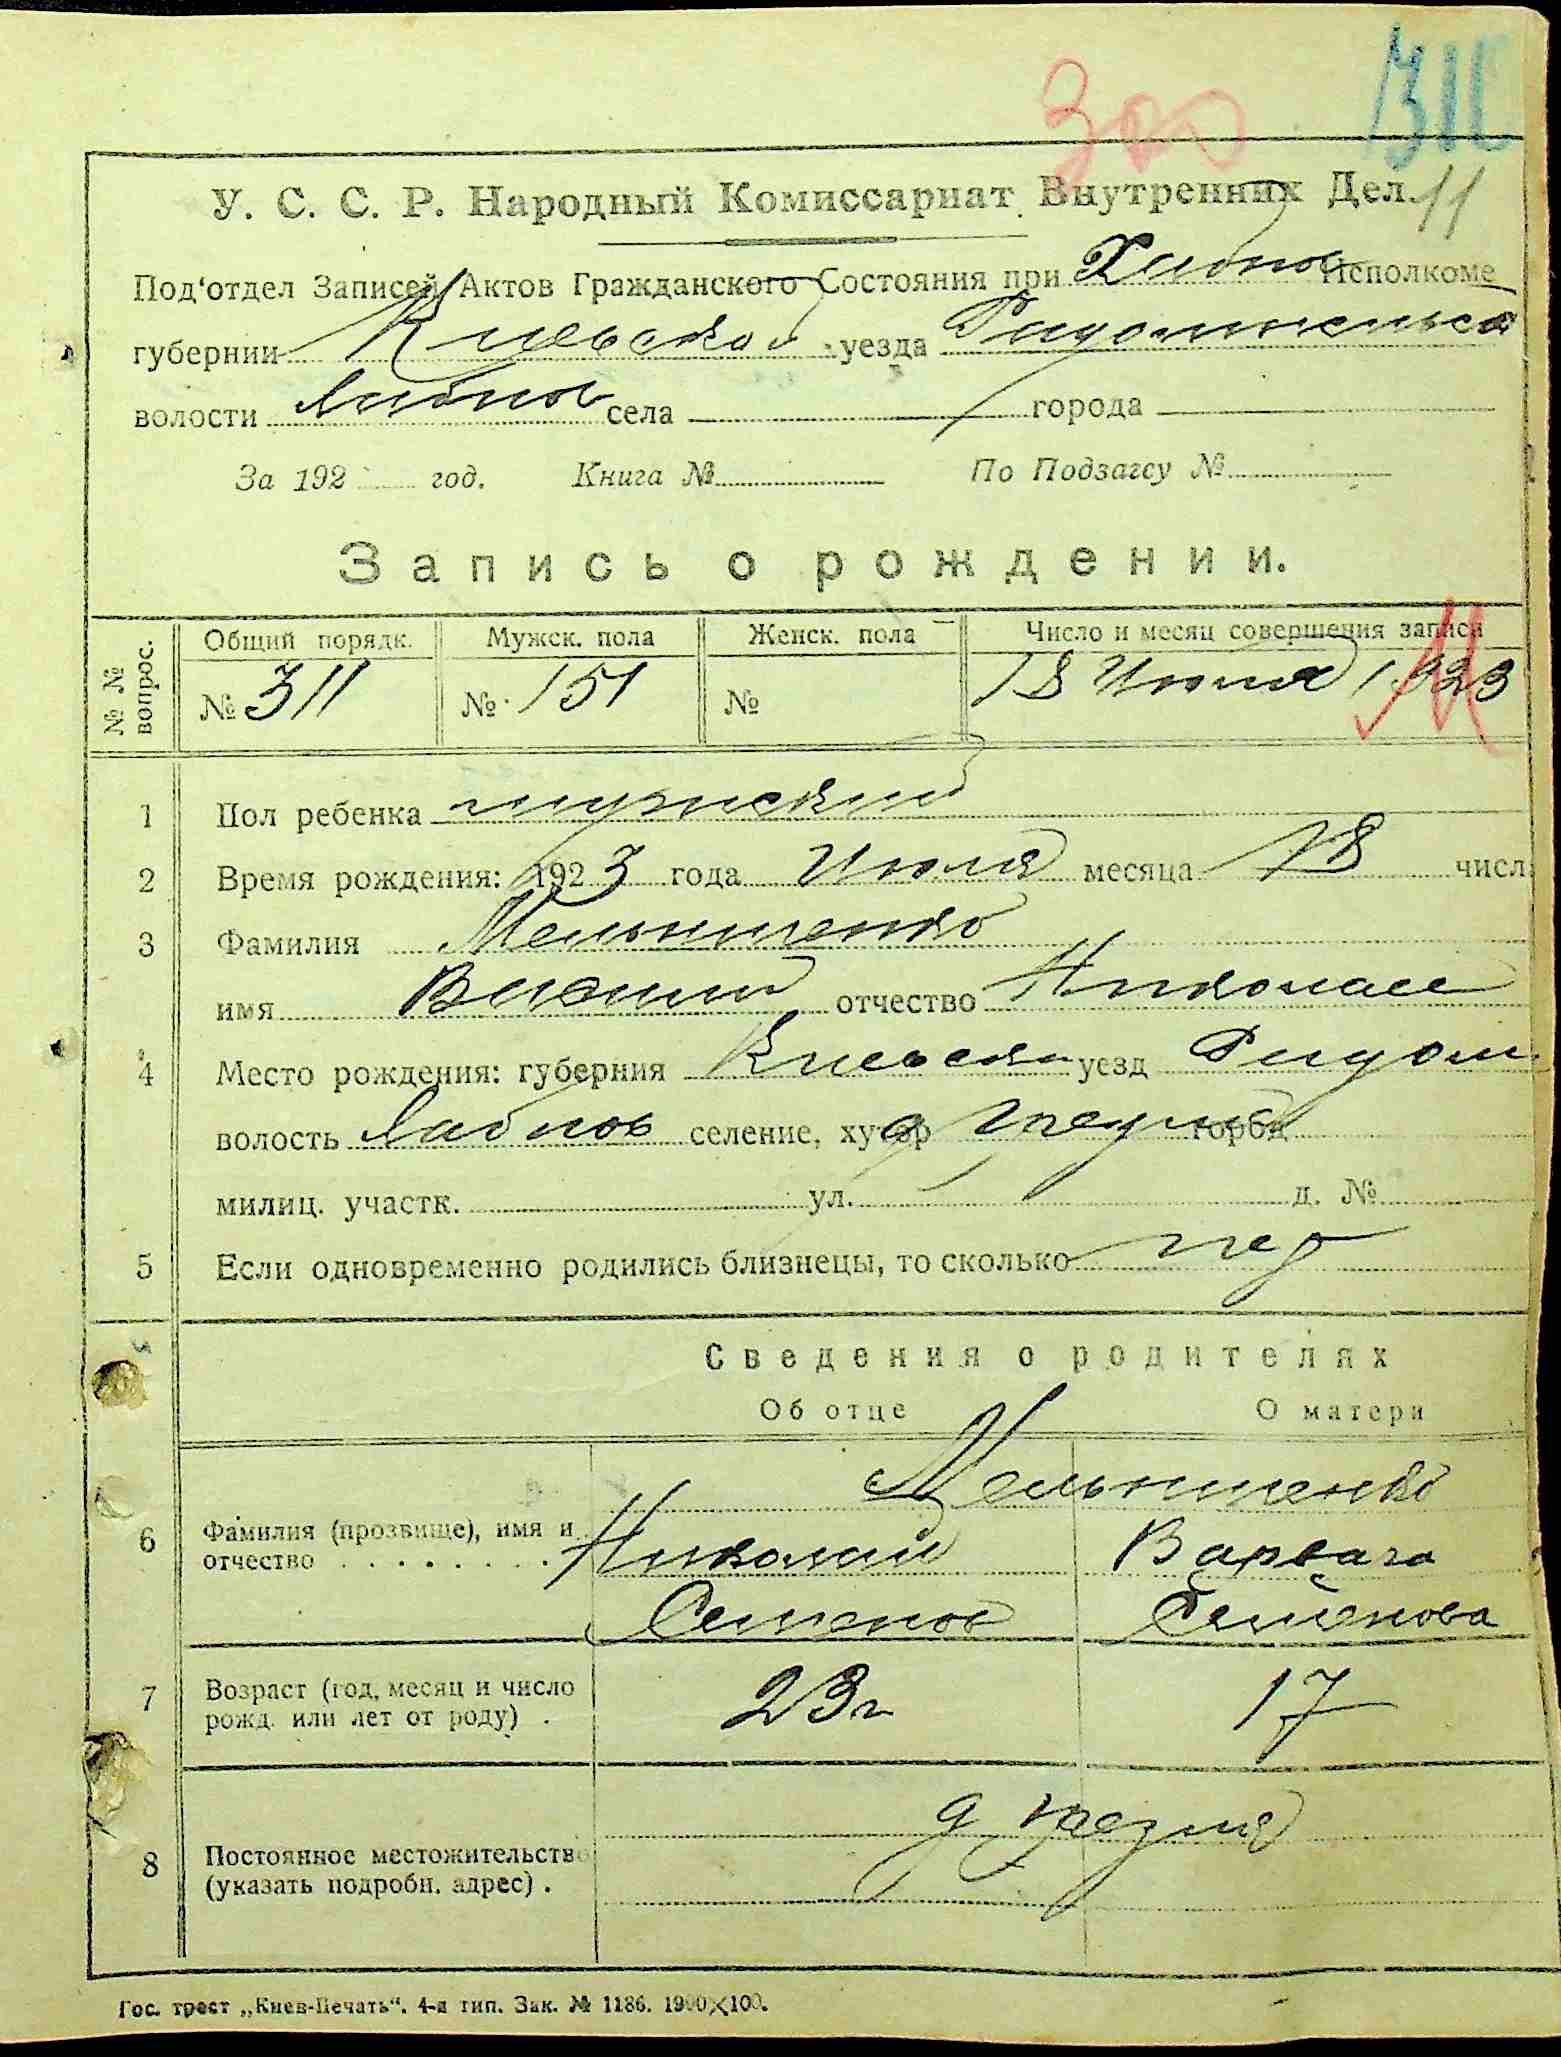 311
300
У. С. С. Р. Народный Комиссариат Внутренних Дел. 11
Под'отдел Записей Актов Гражданского Состояния при Хабнов Исполкоме
губернии Киевской уезда Радомысльск
волости Хабнов села города
За 192 год. Книга № По Подзагсу №
Запись о рождении.
№ № вопрос. Общий порядк. Мужск. пола Женск. пола Число и месяц совершения записи
№ 311 № 151 № 18 Июля 1923
М
1 Пол ребенка мужский
2 Время рождения: 1923 года Июля месяца 18 числ
3 Фамилия Мельниченко
имя отчество Николаев
4 Место рождения: губерния Киевская уезд Радом
волость Хабнов селение, хутор д город
милиц. участк. ул. д. №
5 Если одновременно родились близнецы, то сколько
Сведения о родителях
Об отце О матери
Мельниченко
6 Фамилия (прозвище), имя и отчество . . . . . . . . Николай Варвара
Семенов Семенова
7 Возраст (год, месяц и число рожд. или лет от роду) . 23 г 17
8 Постоянное местожительство (указать подробн. адрес) . д
Гос. трест „Киев-Печать“. 4-я тип. Зак. № 1186. 1900×100.